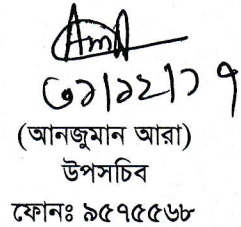 ৩১/১২/১৭
(আনজুমান আরা)
উপসচিব
ফোনঃ ৯৫৭৫৫৬৮